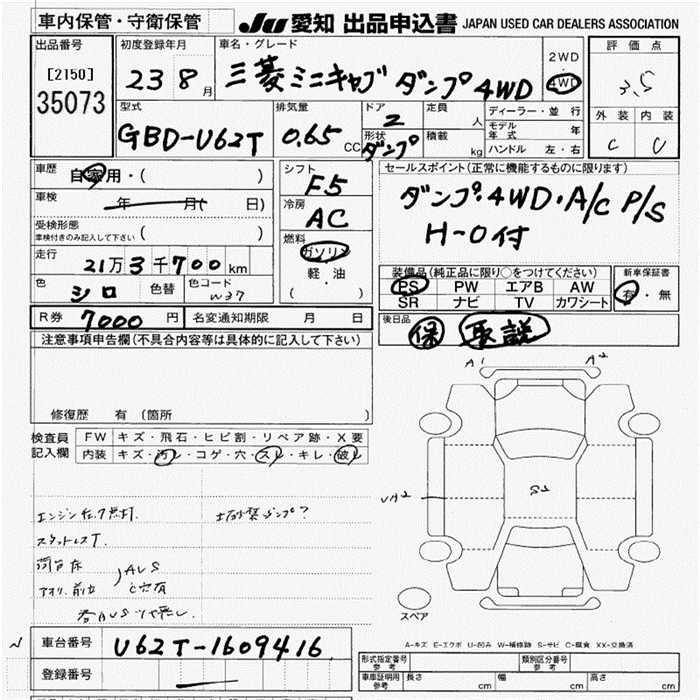 車内保管・守衛保管 JU 愛知 出品申込書 JAPAN USED CAR DEALERS ASSOCIATION
出品番号 初度登録年月 車名・グレード 評価点
[2150] 23 8月 三菱 ミニキャブ ダンプ 4WD 2WD・4WD 3.5
35073 外装 内装
型式 排気量 ドア 定員 ディーラー・並行 C C
GBD-U62T 0.65 CC 2 人 モデル年式 年
形状 ダンプ 積載 kg ハンドル 左・右
車歴 自家用・( ) シフト F5 セールスポイント(正常に機能するものに限ります)
車検 年 月( 日) 冷房 AC ダンプ・4WD・A/C P/S
受検形態 車検付きのみ記入して下さい ( ) H-0付
走行 21万3千700km 燃料 ガソリン 軽油 ( )
装備品(純正品に限り○をつけてください) 新車保証書
色 シロ 色替 色コード W37 PS PW エアB AW 有・無
SR ナビ TV カワシート
R券 7000円 名変通知期限 月 日 後日品 保 取説
注意事項申告欄(不具合内容等は具体的に記入して下さい)
A1 A2
修復歴 有 (箇所 )
検査員記入欄 FW キズ・飛石・ヒビ割・リペア跡・X要
内装 キズ・汚レ・コゲ・穴・スレ・キレ・破レ
S2
エンジン
スタットレス T.
スペア
A-キズ E-エクボ U-凹み W-補修跡 S-サビ C-腐食 XX-交換済
車台番号 U62T-1609416
登録番号
形式指定番号 参考 類別区分番号 参考
車庫証明用 参考 長さ cm 幅 cm 高さ cm